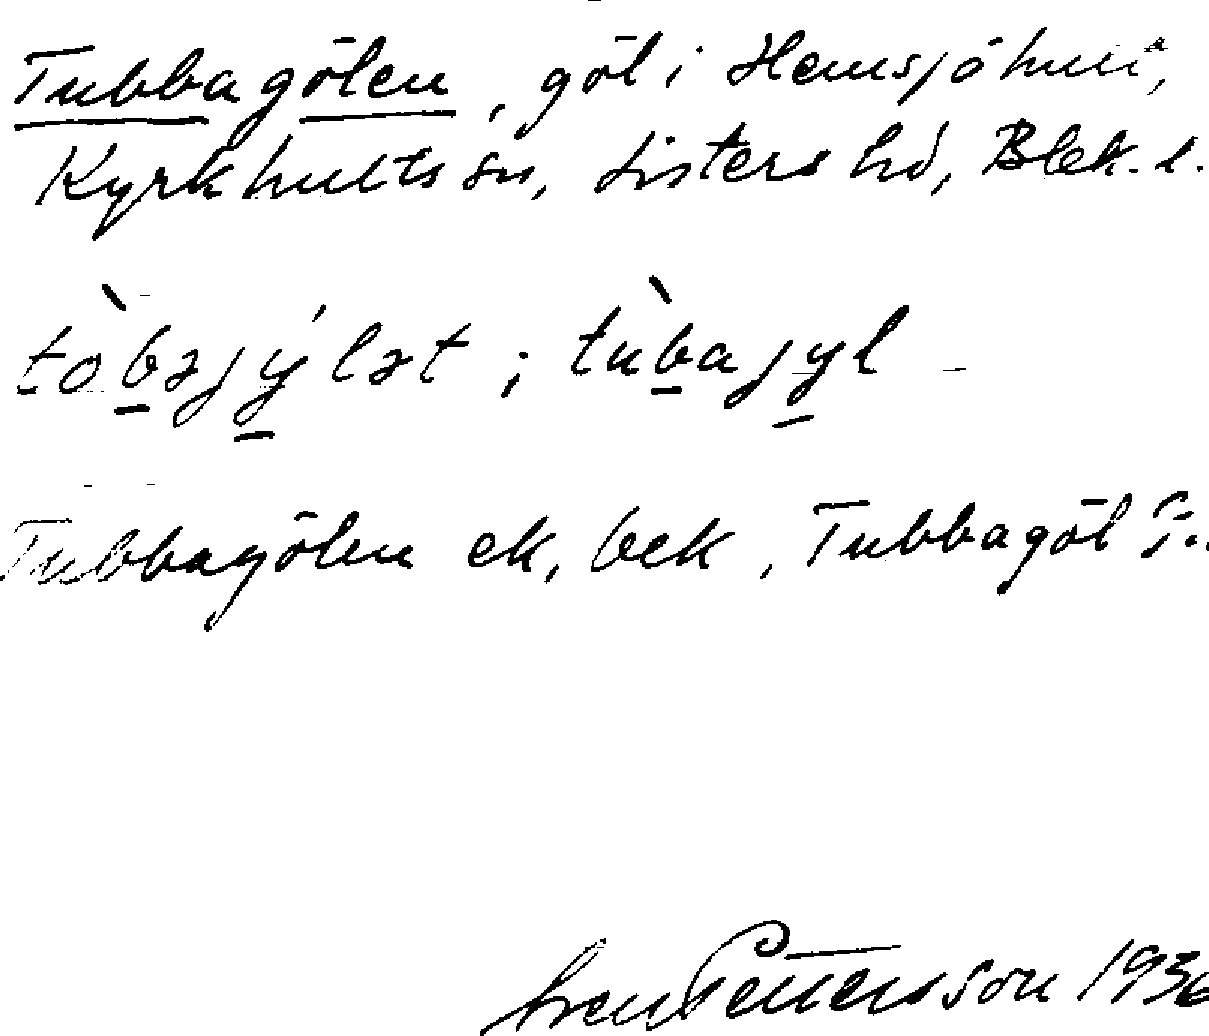 Tubbagölen, göl i Hemsjöhult,
Kyrkhults sn, Listers hd, Blek. l.
tòbəjýlət ; tùbajyl
Tubbagölen ek, bek, Tubbagöl
Sven Pettersson 1936